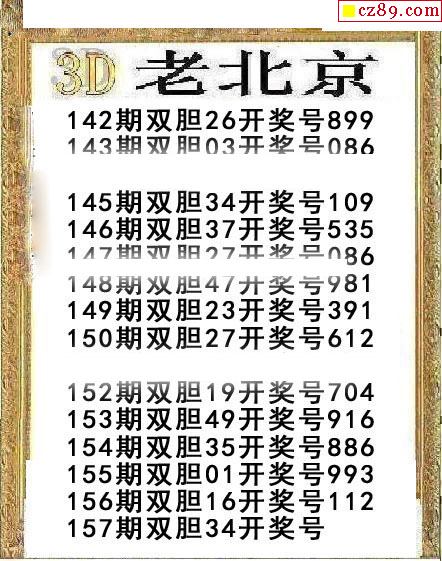 cz89.com
3D 老北京
142期双胆26开奖号899
143期双胆03开奖号086
145期双胆34开奖号109
146期双胆37开奖号535
147期双胆27开奖号086
148期双胆47开奖号981
149期双胆23开奖号391
150期双胆27开奖号612
152期双胆19开奖号704
153期双胆49开奖号916
154期双胆35开奖号886
155期双胆01开奖号993
156期双胆16开奖号112
157期双胆34开奖号